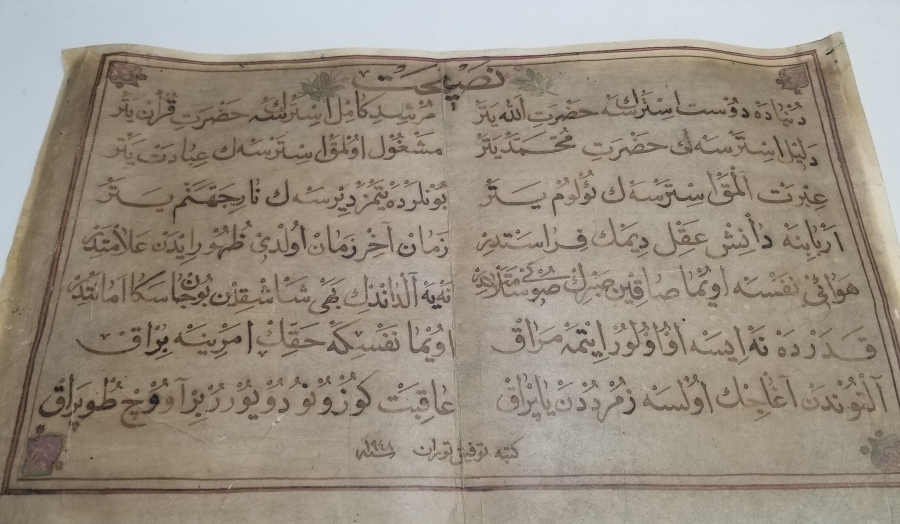 نصیحت
دنیاده دوست استرسه‌ك حضرت الله یتر مرشد کامل استرسه‌ك حضرت قرآن یتر
دلیل استرسه‌ك حضرت محمد یتر مشغول اولمق استرسه‌ك عبادت یتر
عبرت المق استرسه‌ك ئولوم یتر بونلرده یتمز دیرسه‌ك نار جهنم یتر
اربابنه دانش عقل دیمك فراستدر زمان آخر زمان اولدی ظهور ایدن علامتدر
هوائی نفسه اویما صاقین صبرك صوڭی سلامتدر نه‌یه آلداندك بهی شاشقین بو جان سكا امانتدر
قدرده نه ایسه او اولور ایتمه مراق اویما نفسکه حقك امرینه براق
آلتوندن آغاجك اولسه زمرددن یاپراق عاقبت كوزونو دویورر بر آووچ طوپراق
کتبه توفیق توران سنه ١٩٤٨